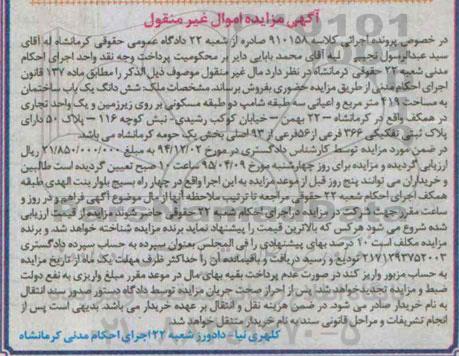 آگهی مزایده اموال غیر منقول
در خصوص پرونده اجرائی کلاسه ۹۱۰۱۵۸ صادره از شعبه ۲۲ دادگاه عمومی حقوقی کرمانشاه له آقای
سید عبدالرسول نجیبی لیه آقای محمد بابایی دایر بر محکومیت پرداخت وجه نقد واحد اجرای احکام
مدنی شعبه ۲۲ حقوقی کرمانشاه در نظر دارد مال غیر منقول موصوف ذیل الذکر را مطابق ماده ۱۳۷ قانون
اجرای احکام مدنی از طریق مزایده حضوری بفروش برساند. مشخصات ملک: شش دانگ یک باب ساختمان
به مساحت ۴۱۹ متر مربع و اعیانی سه طبقه شامل دو طبقه مسکونی بر روی زیرزمین و یک واحد تجاری
در همکف واقع در کرمانشاه – ۲۲ بهمن – خیابان کوکب رشیدی- نبش کوچه ۱۱۶ – پلاک ۵۰ دارای
پلاک ثبتی تفکیکی ۳۶۶ فرعی از ۵۶فرعی از ۹۳ اصلی بخش یک حومه کرمانشاه می باشد.
در ضمن مورد مزایده توسط کارشناس دادگستری در مورخ ۹۴/۱۲/۰۲ به مبلغ ۲۱/۸۵۰/۰۰۰/۰۰۰ ریال
ارزیابی گردیده و مزایده برای روز چهارشنبه مورخ ۹۵/۰۴/۰۹ ساعت ۱۰ صبح تعیین گردیده است طالبین
و خریداران می توانند پنج روز قبل از موعد مزایده به این اجرا واقع در چهار راه بسیج بلوار بنت الهدی طبقه
همکف اجرای احکام شعبه ۲۲ حقوقی مراجعه تا ترتیب ملاحظه آنها از مال موضوع آگهی فراهم و در روز و
ساعت مقرر جهت شرکت در مزایده در اجرای احکام شعبه ۲۲ حقوقی حاضر شوند مزایده از قیمت ارزیابی
شده شروع می شود هر کس که بالاترین قیمت را پیشنهاد نماید برنده مزایده شناخته خواهد شد. و برنده
مزایده مکلف است ۱۰ درصد بهای پیشنهادی را فی المجلس بعنوان سپرده به حساب سپرده دادگستری
۲۱۷۱۲۹۳۷۵۲۰۰۳ تودیع و رسید دریافت و باقیمانده آن را حداکثر ظرف مهلت یک ماه از تاریخ مزایده
به حساب مزبور واریز کند در صورت عدم پرداخت بقیه بهای مال در موعد مقرر مبلغ واریزی به نفع دولت
ضبط و مزایده تجدید خواهد شد. پس از احراز صحت جریان مزایده توسط دادگاه دستور صدور سند انتقال
به نام خریدار صادر می شود. در ضمن هزینه نقل و انتقال بر عهده خریدار می باشد. بدیهی است پس از
انجام تشریفات و مراحل قانونی سند به نام خریدار منتقل خواهد شد.
کلهری نیا- دادورز شعبه ۲۲ اجرای احکام مدنی کرمانشاه